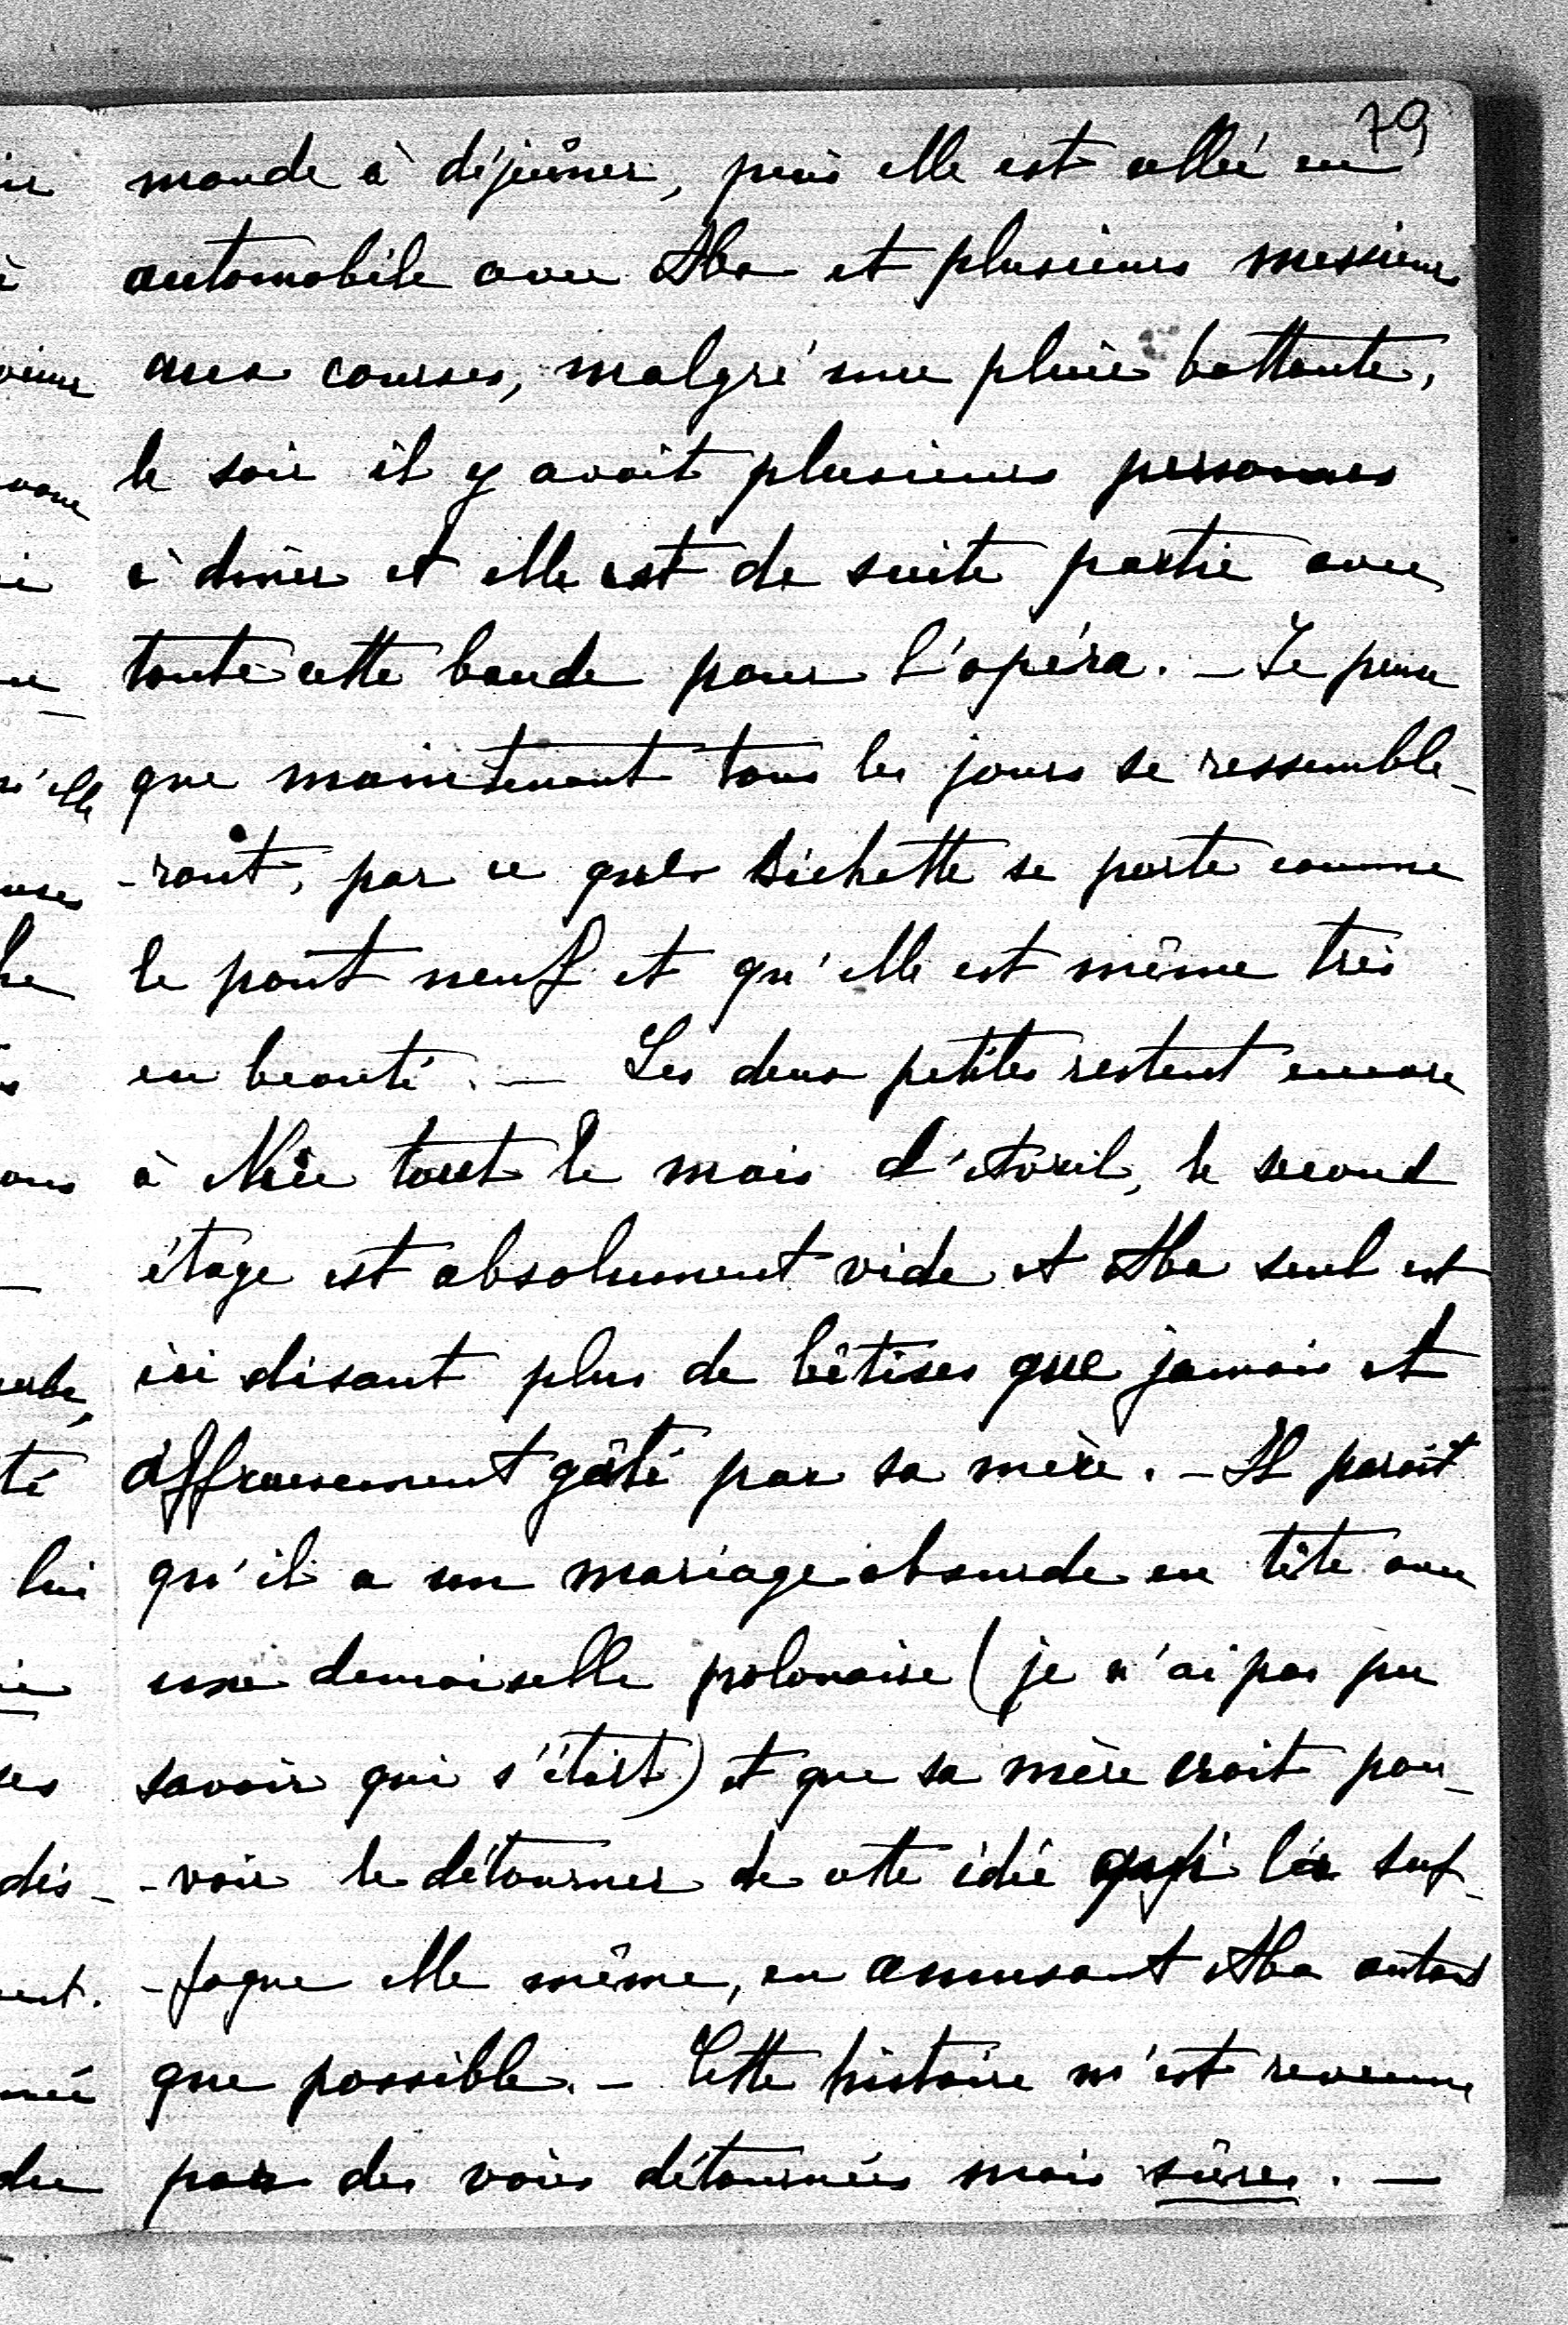 79
monde à déjeûner, puis elle est allée en
automobile avec Aba et plusieurs messieurs
aux courses, malgré une pluie battante,
le soir il y avait plusieurs personnes
à dîner et elle est de suite partie avec
toute cette bande pour l'opéra. – Je pense
que maintenant tous les jours se ressemble-
-ront, par ce que Bichette se porte comme
le pont neuf et qu'elle est même très
en beauté. – Les deux petites restent encore
à Nice tout le mois d'Avril, le second
étage est absolument vide et Aba seul est
ici disant plus de bêtises que jamais et
affreusement gâté par sa mère. – Il parait
qu'il a un mariage absurde en tête avec
une demoiselle polonaise (je n'ai pas pu
savoir qui s'était) et que sa mère croit pou-
-voir le détourner de cette idée qui la suf-
-foque elle même, en amusant Aba autant
que possible. – Cette histoire m'est revenue
par des voies détournées mais sûres. –